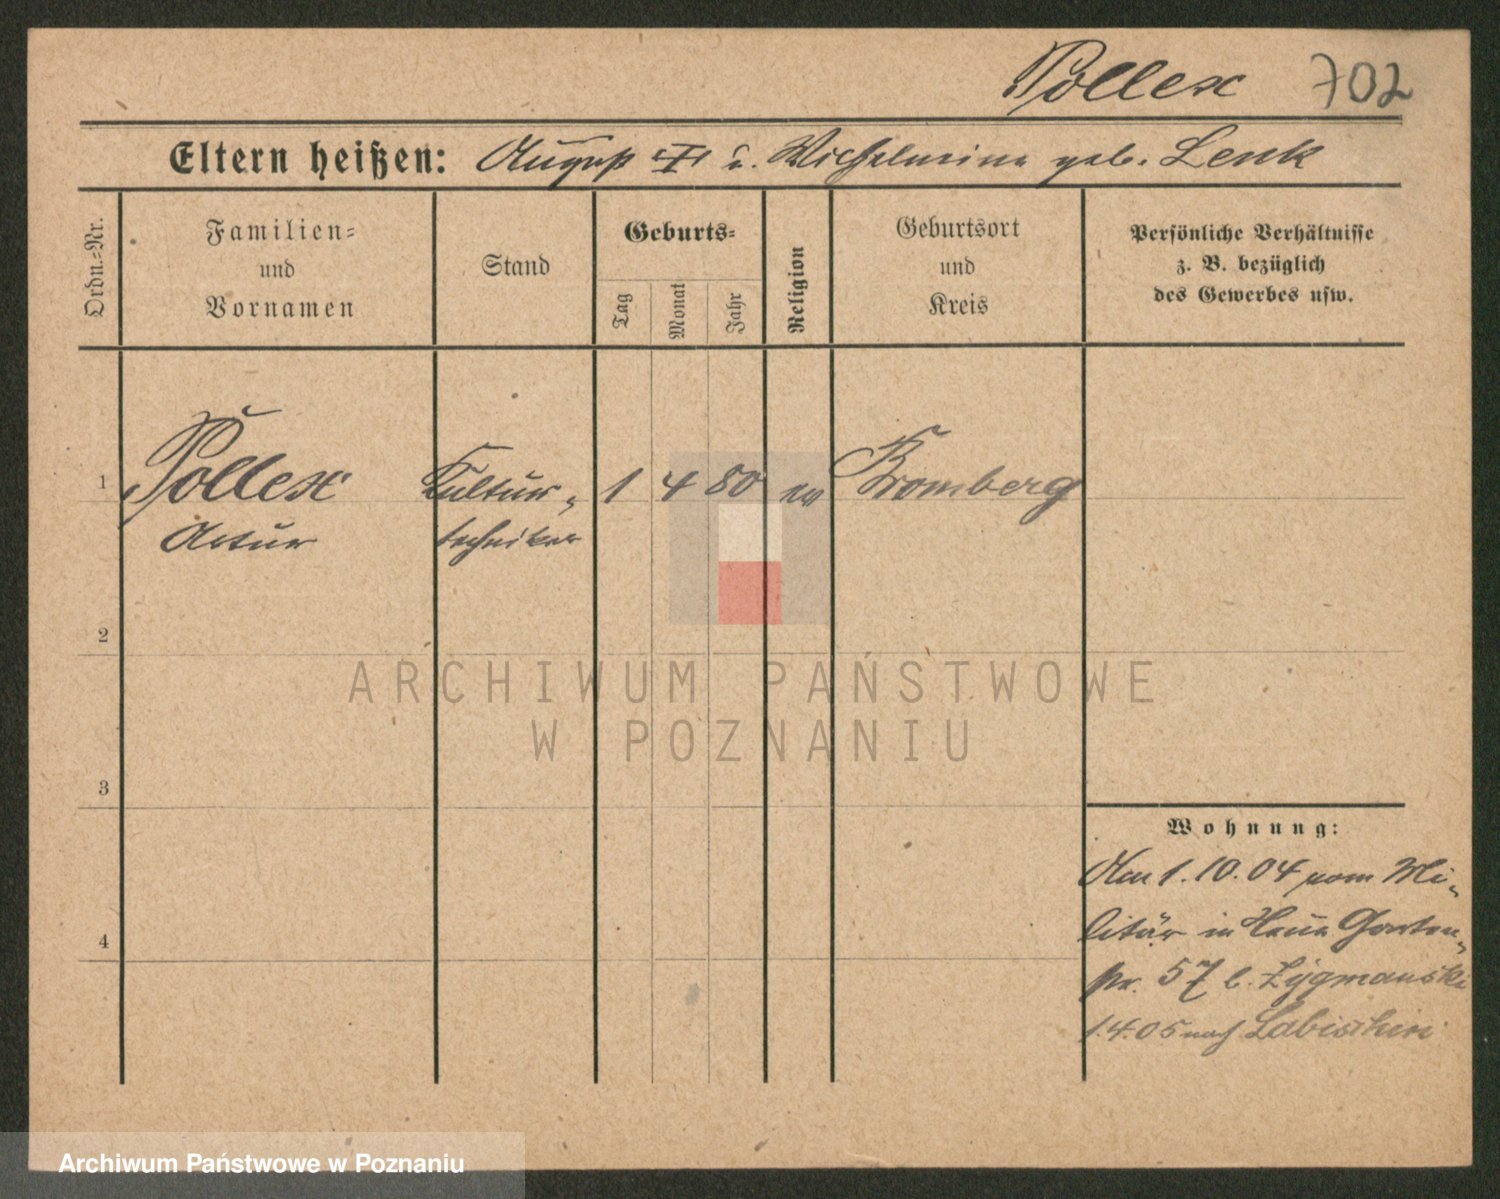 Pollex 702
Eltern heißen: August † u. Wilhelmine geb. Lenk
Ordn.-Nr.
Familien-
und
Vornamen
Stand
Geburts-
Tag
Monat
Jahr
Religion
Geburtsort
und
Kreis
Persönliche Verhältnisse
z. B. bezüglich
des Gewerbes usw.
1 Pollex Kultur- 1 4 80 ev Bromberg
Artur techniker
2
ARCHIWUM PAŃSTWOWE
W POZNANIU
3
Wohnung:
Am 1.10.04 vom Mi-
litär in Neue Garten-
str. 57 b. Zygmanski
4
1.4.05 nach Labischin
Archiwum Państwowe w Poznaniu